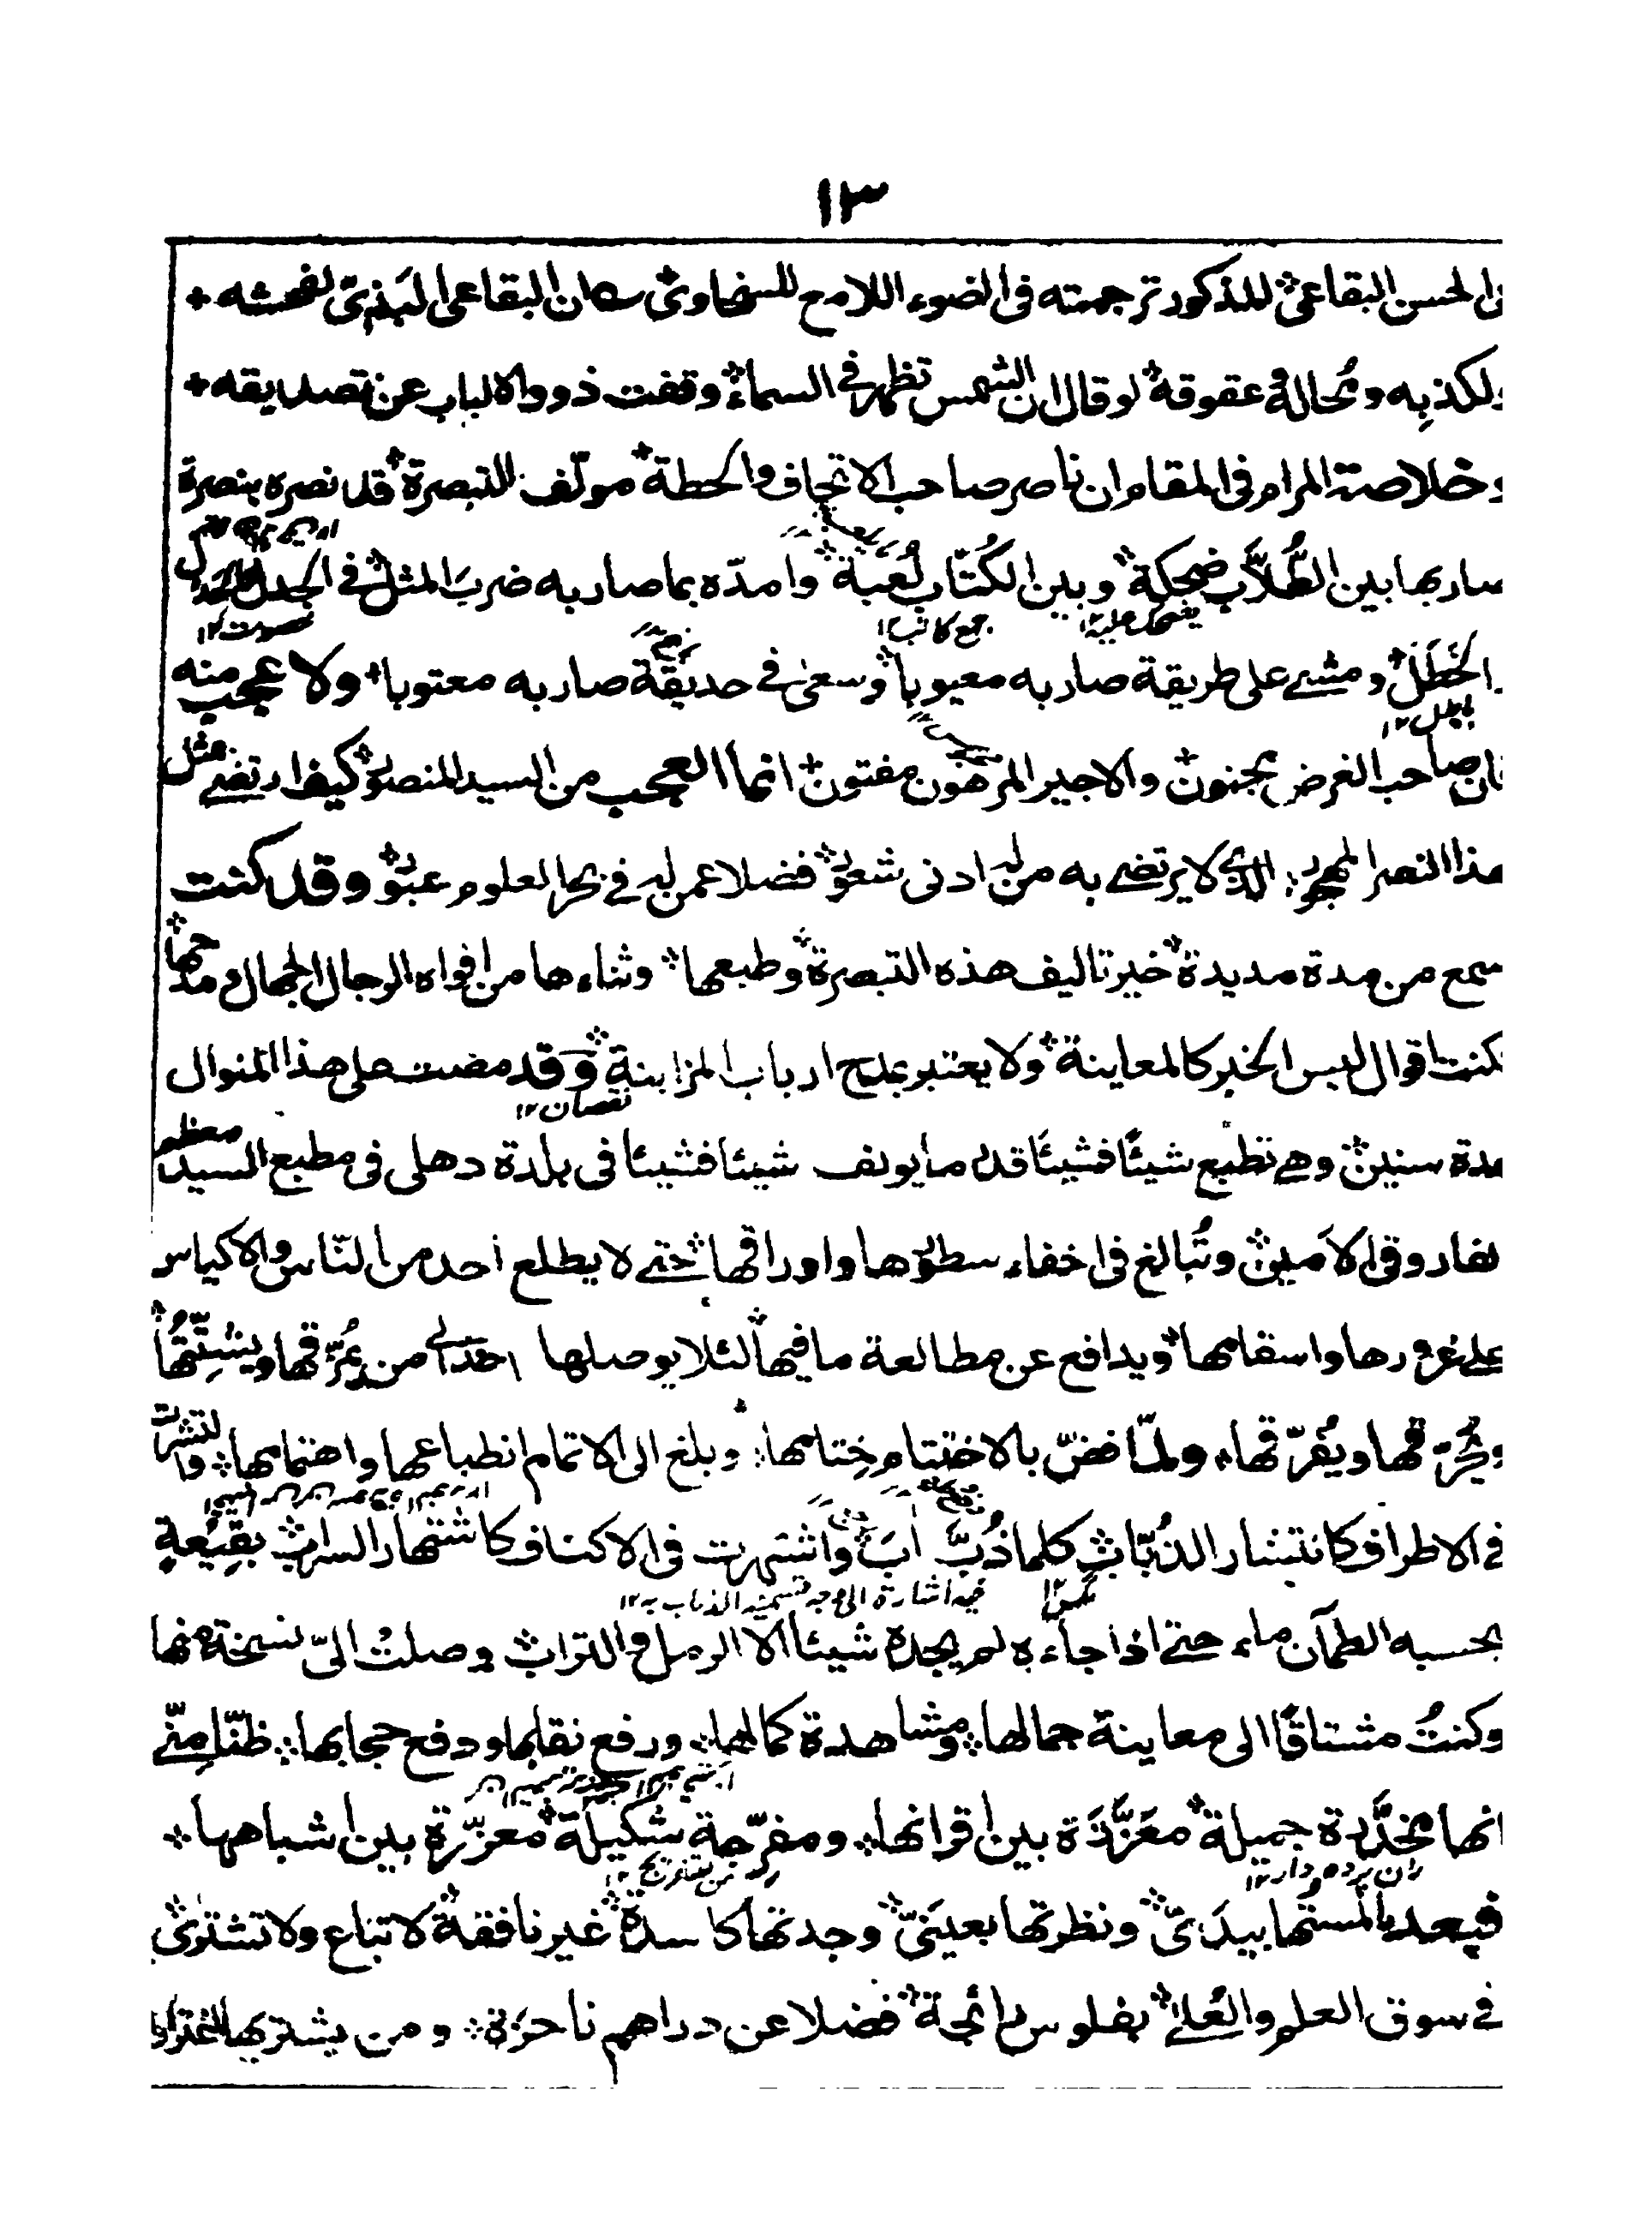 ١٣
الحسن البقاعى المذكور ترجمته فى الضوء اللامع للسخاوى كان البقاعى البذىّ لفحشه +
ولكذبه ومحاله وعقوقه لو قال ان الشمس تظهر فى السماء وقفت ذووالالباب عن تصديقه +
وخلاصة المرام فى المقام ان ناصر صاحب الاتحاف والحطة مولّف التبصرة قد نصره بنصرة
صار بها بين الطُّلاَّب ضحكة وبين الكُتّاب لُعبة وامدّه بما صار به ضربَ المثل فى الجدل
يضحك عليه١٢ جمع كاتب١٢ خصومت١٢
والخَطَل ومشے على طريقة صار به معيوبا وسعىٰ فے حديقة صار به معتوبا ولا عجب منه
باطل١٢
فان صاحب الغرض مجنون والاجير المرهون مفتون انما العجب من السيد المنصور كيف ارتضے بمثل
هذا النصر المهجور الذى لا يرتضے به من له ادنى شعور فضلا عمن له فے بحر العلوم عبور وقد كنت
اسمع من مدة مديدة خبر تاليف هذه التبصرة وطبعها وثناءها من افواه الرجال الجهال ومدحها
فكنت اقوال ليس الخبر كالمعاينة ولا يعتبر بمدح ارباب المزابنة وقد مضت على هذا المنوال
نقصان١٢
مدة سنين وهے تطبع شيئًا فشيئًا قدر ما يولف شيئا فشيئا فى بلدة دهلى فى مطبع السيد معظم
الفاروقى الامين وتُبالغ فى اخفاء سطورها واوراقها حتے لا يطلع احد من النّاس والاكياس
علے غرورها واسقامها ويدافع عن مطالعة ما فيها لئلا يوصلها احد الى من يمزّقها ويشتّتها
ويُحرّقها ويُفرّقها ولمّا فضّ بالاختتام ختامها وبلغ الى الاتمام انطباعها واهتمامها وانتشرت
فے الاطراف كانتشار الذُبّاب كلما ذُبّ اٰبَ واشتهرت فى الاكناف كاشتهار السراب بقِيْعةٍ
مگس١٢ فيه اشارة الى وجه تسمية الذباب به١٢
يحسبه الظمآن ماء حتے اذا جاءه لم يجده شيئا الا الرمل والتراب وصلتْ الىّ نسخة منها
وكنتُ مشتاقًا الى معاينة جمالها ومشاهدة كمالها ورفع نقابها ودفع حجابها ظنّا مِنّے
انها مخدَّرة جميلة معَزَّزَة بين اقرانها ومفرّحة شكيلة معزّزة بين اشباهها
زن پرده دار١٢ من التفريح١٢
فبعد ما لمستها بيدَىّ ونظرتها بعينَىّ وجدتها كاسدة غير نافقة لا تباع ولا تشترىٰ
فے سوق العلم والعُلےٰ بفلوس رائجة فضلا عن دراهم ناجزة ومن يشتريها